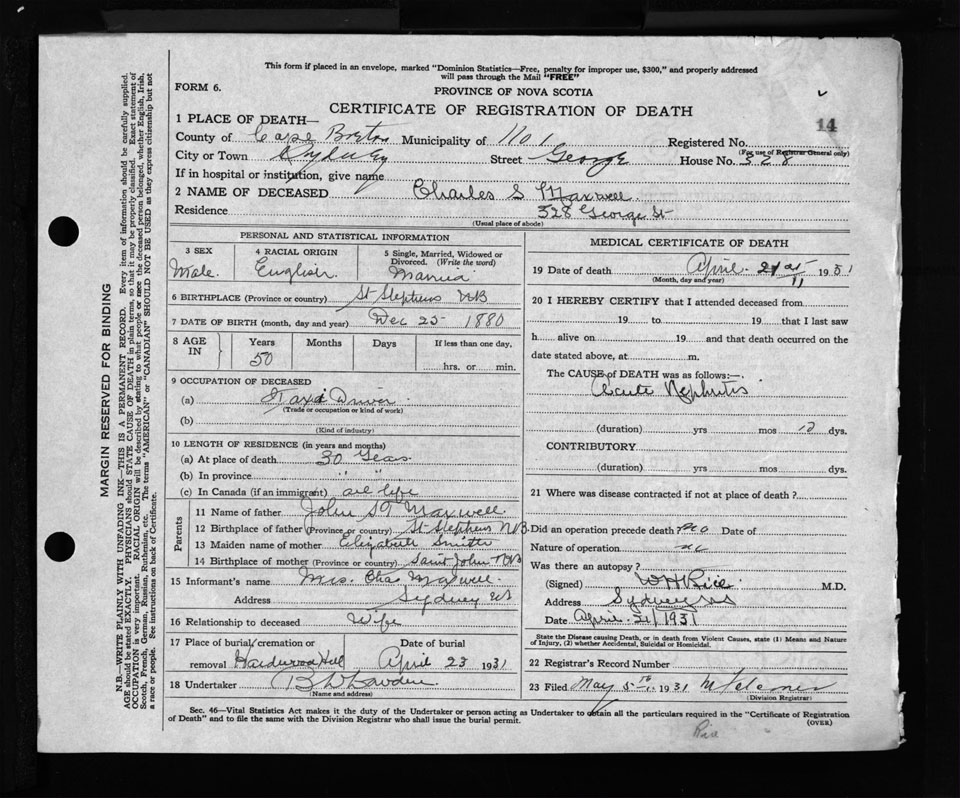 This form if placed in an envelope, marked "Dominion Statistics—Free, penalty for improper use, $300," and properly addressed
will pass through the Mail "FREE"
FORM 6.
PROVINCE OF NOVA SCOTIA
CERTIFICATE OF REGISTRATION OF DEATH
14
1 PLACE OF DEATH—
County of Cape Breton Municipality of No 1 Registered No.
(For use of Registrar General only)
City or Town Sydney Street George House No. 328
If in hospital or institution, give name
2 NAME OF DECEASED Charles S Maxwell
Residence 328 George St
(Usual place of abode)
PERSONAL AND STATISTICAL INFORMATION
3 SEX
Male
4 RACIAL ORIGIN
English
5 Single, Married, Widowed or
Divorced. (Write the word)
Married
6 BIRTHPLACE (Province or country) St Stephens NB
7 DATE OF BIRTH (month, day and year) Dec 25 1880
8 AGE IN
Years Months Days If less than one day,
50 hrs. or min.
9 OCCUPATION OF DECEASED
(a) Taxi Driver
(Trade or occupation or kind of work)
(b)
(Kind of industry)
10 LENGTH OF RESIDENCE (in years and months)
(a) At place of death 30 Years
(b) In province " "
(c) In Canada (if an immigrant) all life
Parents
11 Name of father John St Maxwell
12 Birthplace of father (Province or country) St Stephens NB
13 Maiden name of mother Elizabeth Smith
14 Birthplace of mother (Province or country) Saint John NB
15 Informant's name Mrs. Chas Maxwell
Address Sydney NS
16 Relationship to deceased Wife
17 Place of burial, cremation or Date of burial
removal Hardwood Hill April 23 1931
18 Undertaker
(Name and address)
MEDICAL CERTIFICATE OF DEATH
19 Date of death April 21st 1931
(Month, day and year) 11
20 I HEREBY CERTIFY that I attended deceased from
19 to 19 that I last saw
h alive on 19 and that death occurred on the
date stated above, at m.
The CAUSE of DEATH was as follows:—
Acute Nephritis
(duration) yrs mos 10 dys.
CONTRIBUTORY
(duration) yrs mos dys.
21 Where was disease contracted if not at place of death?
Did an operation precede death no Date of
Nature of operation
Was there an autopsy?
(Signed) W H Rice M.D.
Address Sydney NS
Date April 21/1931
State the Disease causing Death, or in death from Violent Causes, state (1) Means and Nature
of Injury, (2) whether Accidental, Suicidal or Homicidal.
22 Registrar's Record Number
23 Filed May 5th 1931
(Division Registrar)
Sec. 46—Vital Statistics Act makes it the duty of the Undertaker or person acting as Undertaker to obtain all the particulars required in the "Certificate of Registration
of Death" and to file the same with the Division Registrar who shall issue the burial permit. (OVER)
MARGIN RESERVED FOR BINDING
N.B.—WRITE PLAINLY WITH UNFADING INK—THIS IS A PERMANENT RECORD. Every item of information should be carefully supplied.
AGE should be stated EXACTLY. PHYSICIANS should STATE CAUSE OF DEATH in plain terms, so that it may be properly classified. Exact statement of
OCCUPATION is very important. RACIAL ORIGIN will be described by stating to what people or race the deceased person belonged, whether English, Irish,
Scotch, French, German, Russian, Ruthenian, etc. The terms "AMERICAN" or "CANADIAN" SHOULD NOT BE USED as they express citizenship but not
a race or people. See instructions on back of Certificate.